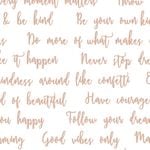 every moment matters Throw
& be kind Be your own kind
s Do more of what makes
ke it happen Never stop dre
kindness around like confetti E
d of beautiful Have courage
you happy Follow your dream
ming Good vibes only Ma